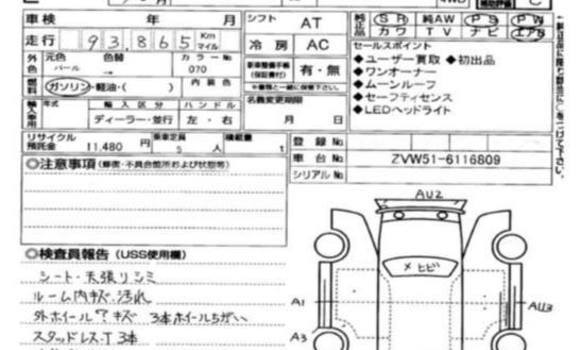 車検 年 月
シフト AT
純正品 SR 純AW PS PW
カワ TV ナビ エアB
走行 93,865 Km マイル
冷房 AC
セールスポイント
◆ユーザー買取 ◆初出品
◆ワンオーナー
◆ムーンルーフ
◆セーフティセンス
◆LEDヘッドライト
外色 元色 パール → 色替 カラーNo 070
車両整備手帳(保証書付) 有・無
燃料 ガソリン・軽油・( ) 内装色
輸入車用 年式 輸入区分 ハンドル
ディーラー・並行 左・右
名義変更期限
月 日
リサイクル預託金 11,480 円 乗車定員 5 人 積載量 t
登録No
車台No ZVW51-6116809
シリアルNo
◎注意事項(修復・不具合箇所および状態等)
◎検査員報告(USS使用欄)
シート・天張リシミ
ルーム内キズ・汚れ
スタッドレス・T 3本
AU2
メヒビ
A1
AU3
A3